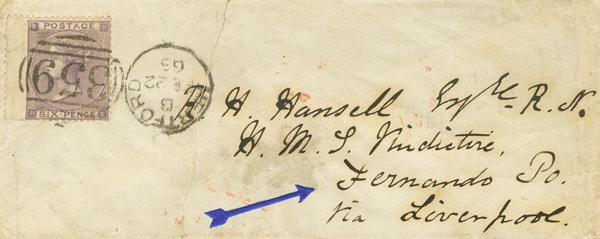 POSTAGE
SIX PENCE
659
HERTFORD
B
22
65
H. Hansell Esqre. R.N.
H. M. S. Vindictive,
Fernando Po.
Via Liverpool.